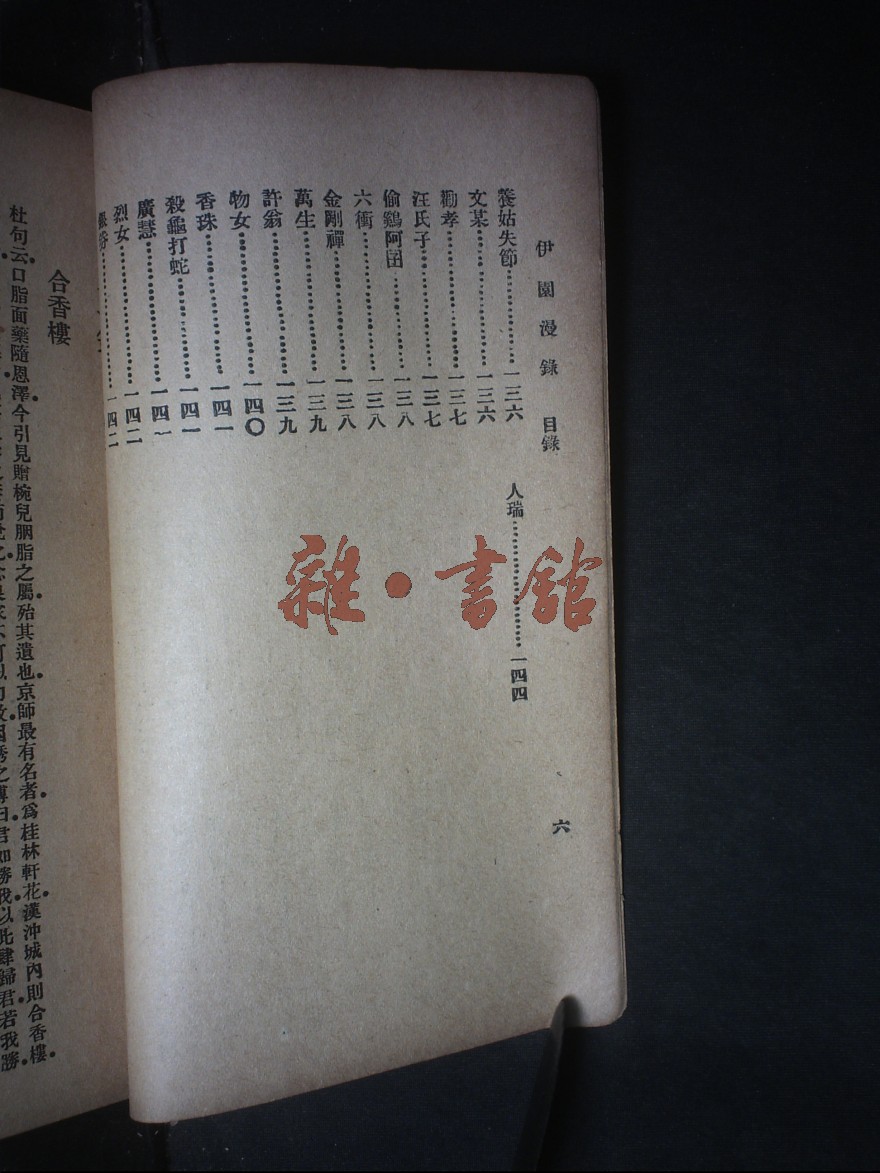 伊園漫錄 目錄
養姑失節……一三六
文某……一三六
勸孝……一三七
汪氏子……一三七
偷鷄阿囝……一三八
六衝……一三八
金剛禪……一三八
萬生……一三九
許翁……一三九
物女……一四〇
香珠……一四一
殺龜打蛇……一四一
廣慧……一四一
烈女……一四二
一四二
人瑞……一四四
六
雜·書館
合香樓
杜句云口脂面藥隨恩澤今引見贈椀兒胭脂之屬殆其遺也京師最有名者爲桂林軒花漢沖城內則合香樓
君如勝我以此肆歸君若我勝